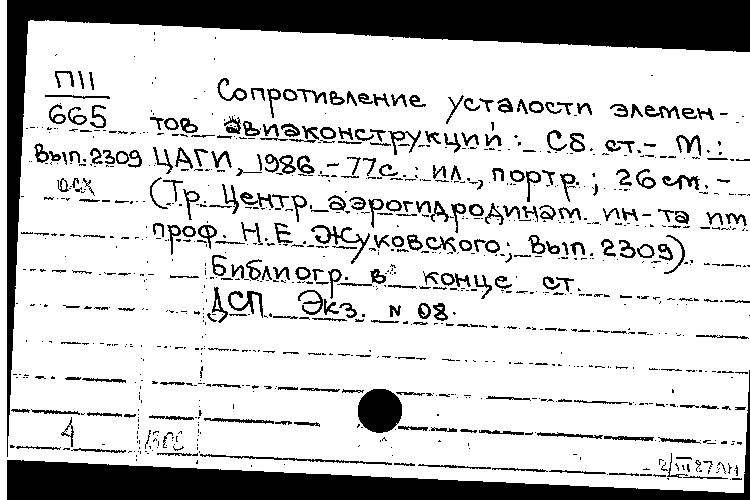 П11
665
Вып. 2309
ОСХ
Сопротивление усталости элемен-
тов авиаконструкций: Сб. ст. - М.:
ЦАГИ, 1986. - 77с.: ил., портр.; 26 см. -
(Тр. Центр. аэрогидродинам. ин-та им.
проф. Н.Е. Жуковского; Вып. 2309).
Библиогр. в конце ст.
ДСП. Экз. N 08.
4
2/III 87